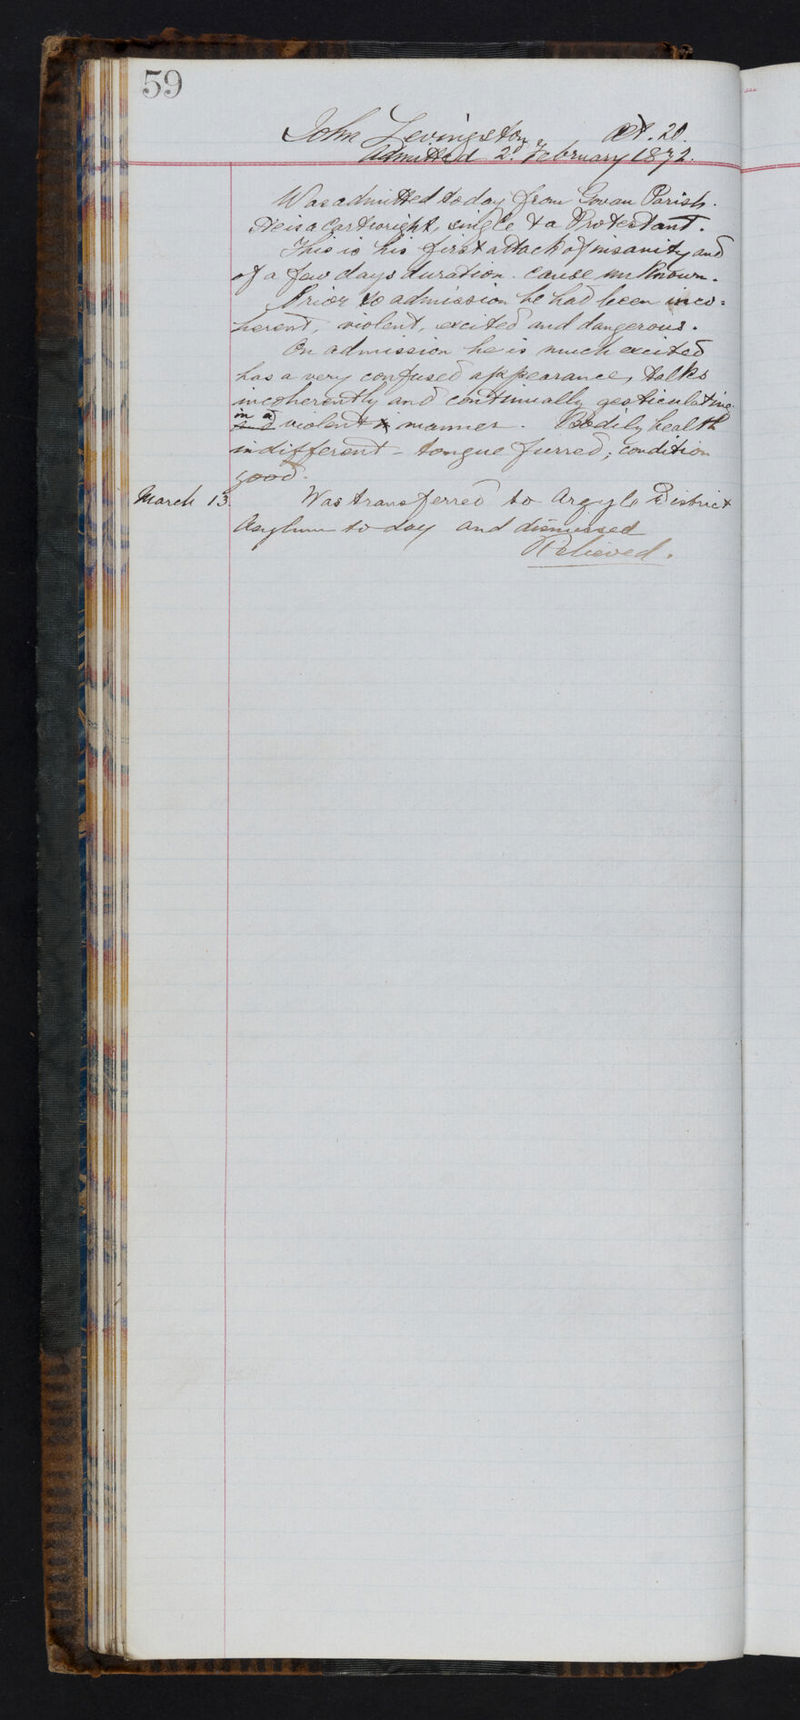 59
John Levingston Æt. 20.
Admitted 2d February 1872.
Was admitted today from Govan Parish.
He is a Cartwright, single & a Protestant.
This is his first attack of insanity and
of a few days duration. Cause unknown.
Prior to admission he had been inco=
herent, violent, excited and dangerous.
On admission he is much excited
has a very confused appearance, talks
incoherently and continually gesticulating
in a violent manner. Bodily health
indifferent - tongue furred; condition
good.
March 13. Was transferred to Argyle District
Asylum to-day and dismissed
Relieved.